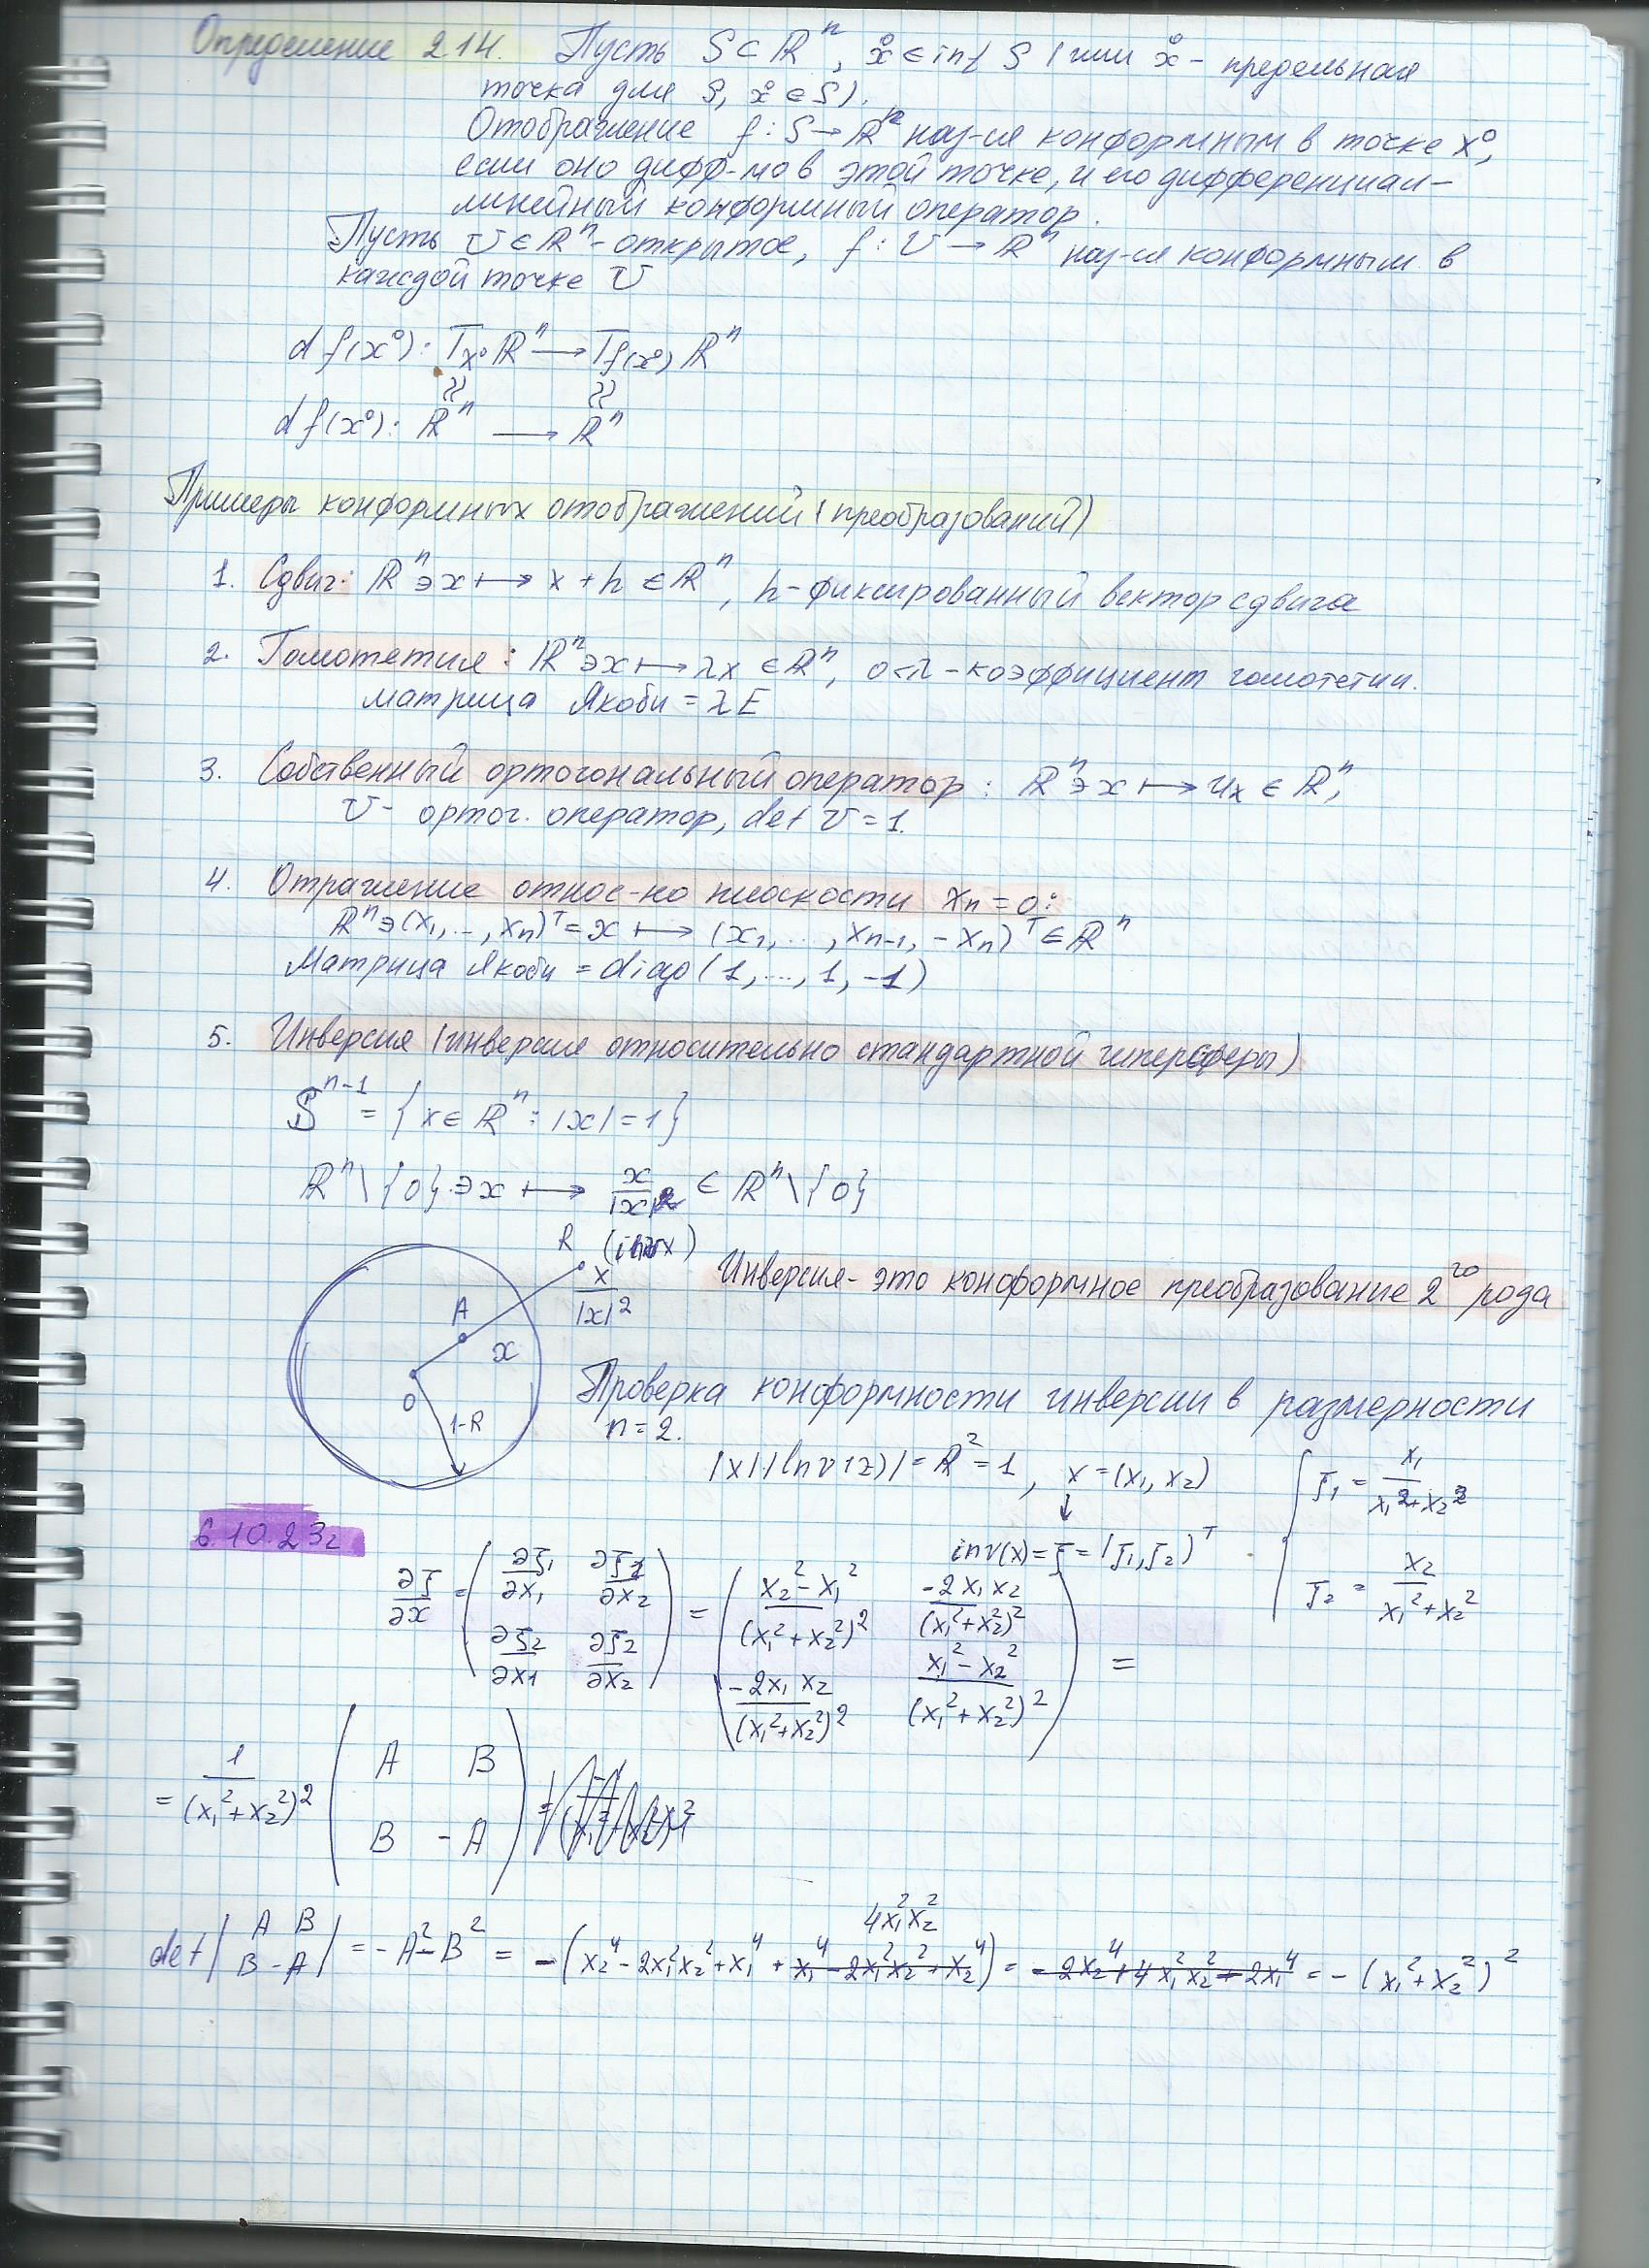 Определение 2.14. Пусть S ⊂ ℝⁿ, x⁰ ∈ int S (или x⁰ - предельная
точка для S, x⁰ ∈ S).
Отображение f : S → ℝⁿ наз-ся конформным в точке x⁰,
если оно дифф-мо в этой точке, и его дифференциал -
линейный конформный оператор.
Пусть U ∈ ℝⁿ - открытое, f : U → ℝⁿ наз-ся конформным в
каждой точке U
df(x⁰) : T_{x⁰} ℝⁿ → T_{f(x⁰)} ℝⁿ
≈ ≈
df(x⁰) : ℝⁿ → ℝⁿ
Примеры конформных отображений (преобразований)
1. Сдвиг: ℝⁿ ∋ x ↦ x + h ∈ ℝⁿ, h - фиксированный вектор сдвига
2. Гомотетия : ℝⁿ ∋ x ↦ λx ∈ ℝⁿ, 0 < λ - коэффициент гомотетии.
матрица Якоби = λE
3. Собственный ортогональный оператор : ℝⁿ ∋ x ↦ Ux ∈ ℝⁿ,
U - ортог. оператор, det U = 1.
4. Отражение относ-но плоскости xₙ = 0 :
ℝⁿ ∋ (x₁, ..., xₙ)ᵀ = x ↦ (x₁, ..., xₙ₋₁, -xₙ)ᵀ ∈ ℝⁿ
Матрица Якоби = diag (1, ..., 1, -1)
5. Инверсия (инверсия относительно стандартной гиперсферы)
Sⁿ⁻¹ = { x ∈ ℝⁿ : |x| = 1 }
ℝⁿ \ {0} ∋ x ↦ x/|x|² ∈ ℝⁿ \ {0}
R (inv x)
x/|x|²
A
x
O
1-R
Инверсия - это конформное преобразование 2го рода
Проверка конформности инверсии в размерности
n = 2.
|x| |inv(x)| = R² = 1, x = (x₁, x₂)
↓
inv(x) = ξ = (ξ₁, ξ₂)ᵀ
{ ξ₁ = x₁/(x₁² + x₂²)
ξ₂ = x₂/(x₁² + x₂²)
6.10.23г
∂ξ/∂x = ( ∂ξ₁/∂x₁ ∂ξ₁/∂x₂ ; ∂ξ₂/∂x₁ ∂ξ₂/∂x₂ ) = ( (x₂² - x₁²)/(x₁² + x₂²)² -2x₁x₂/(x₁² + x₂²)² ; -2x₁x₂/(x₁² + x₂²)² (x₁² - x₂²)/(x₁² + x₂²)² ) =
= 1/(x₁² + x₂²)² ( A B ; B -A )
4x₁²x₂²
det | A B ; B -A | = -A² - B² = -(x₂⁴ - 2x₁²x₂² + x₁⁴ + x₁⁴ - 2x₁²x₂² + x₂⁴) = -2x₂⁴ + 4x₁²x₂² - 2x₁⁴ = -(x₁² + x₂²)²